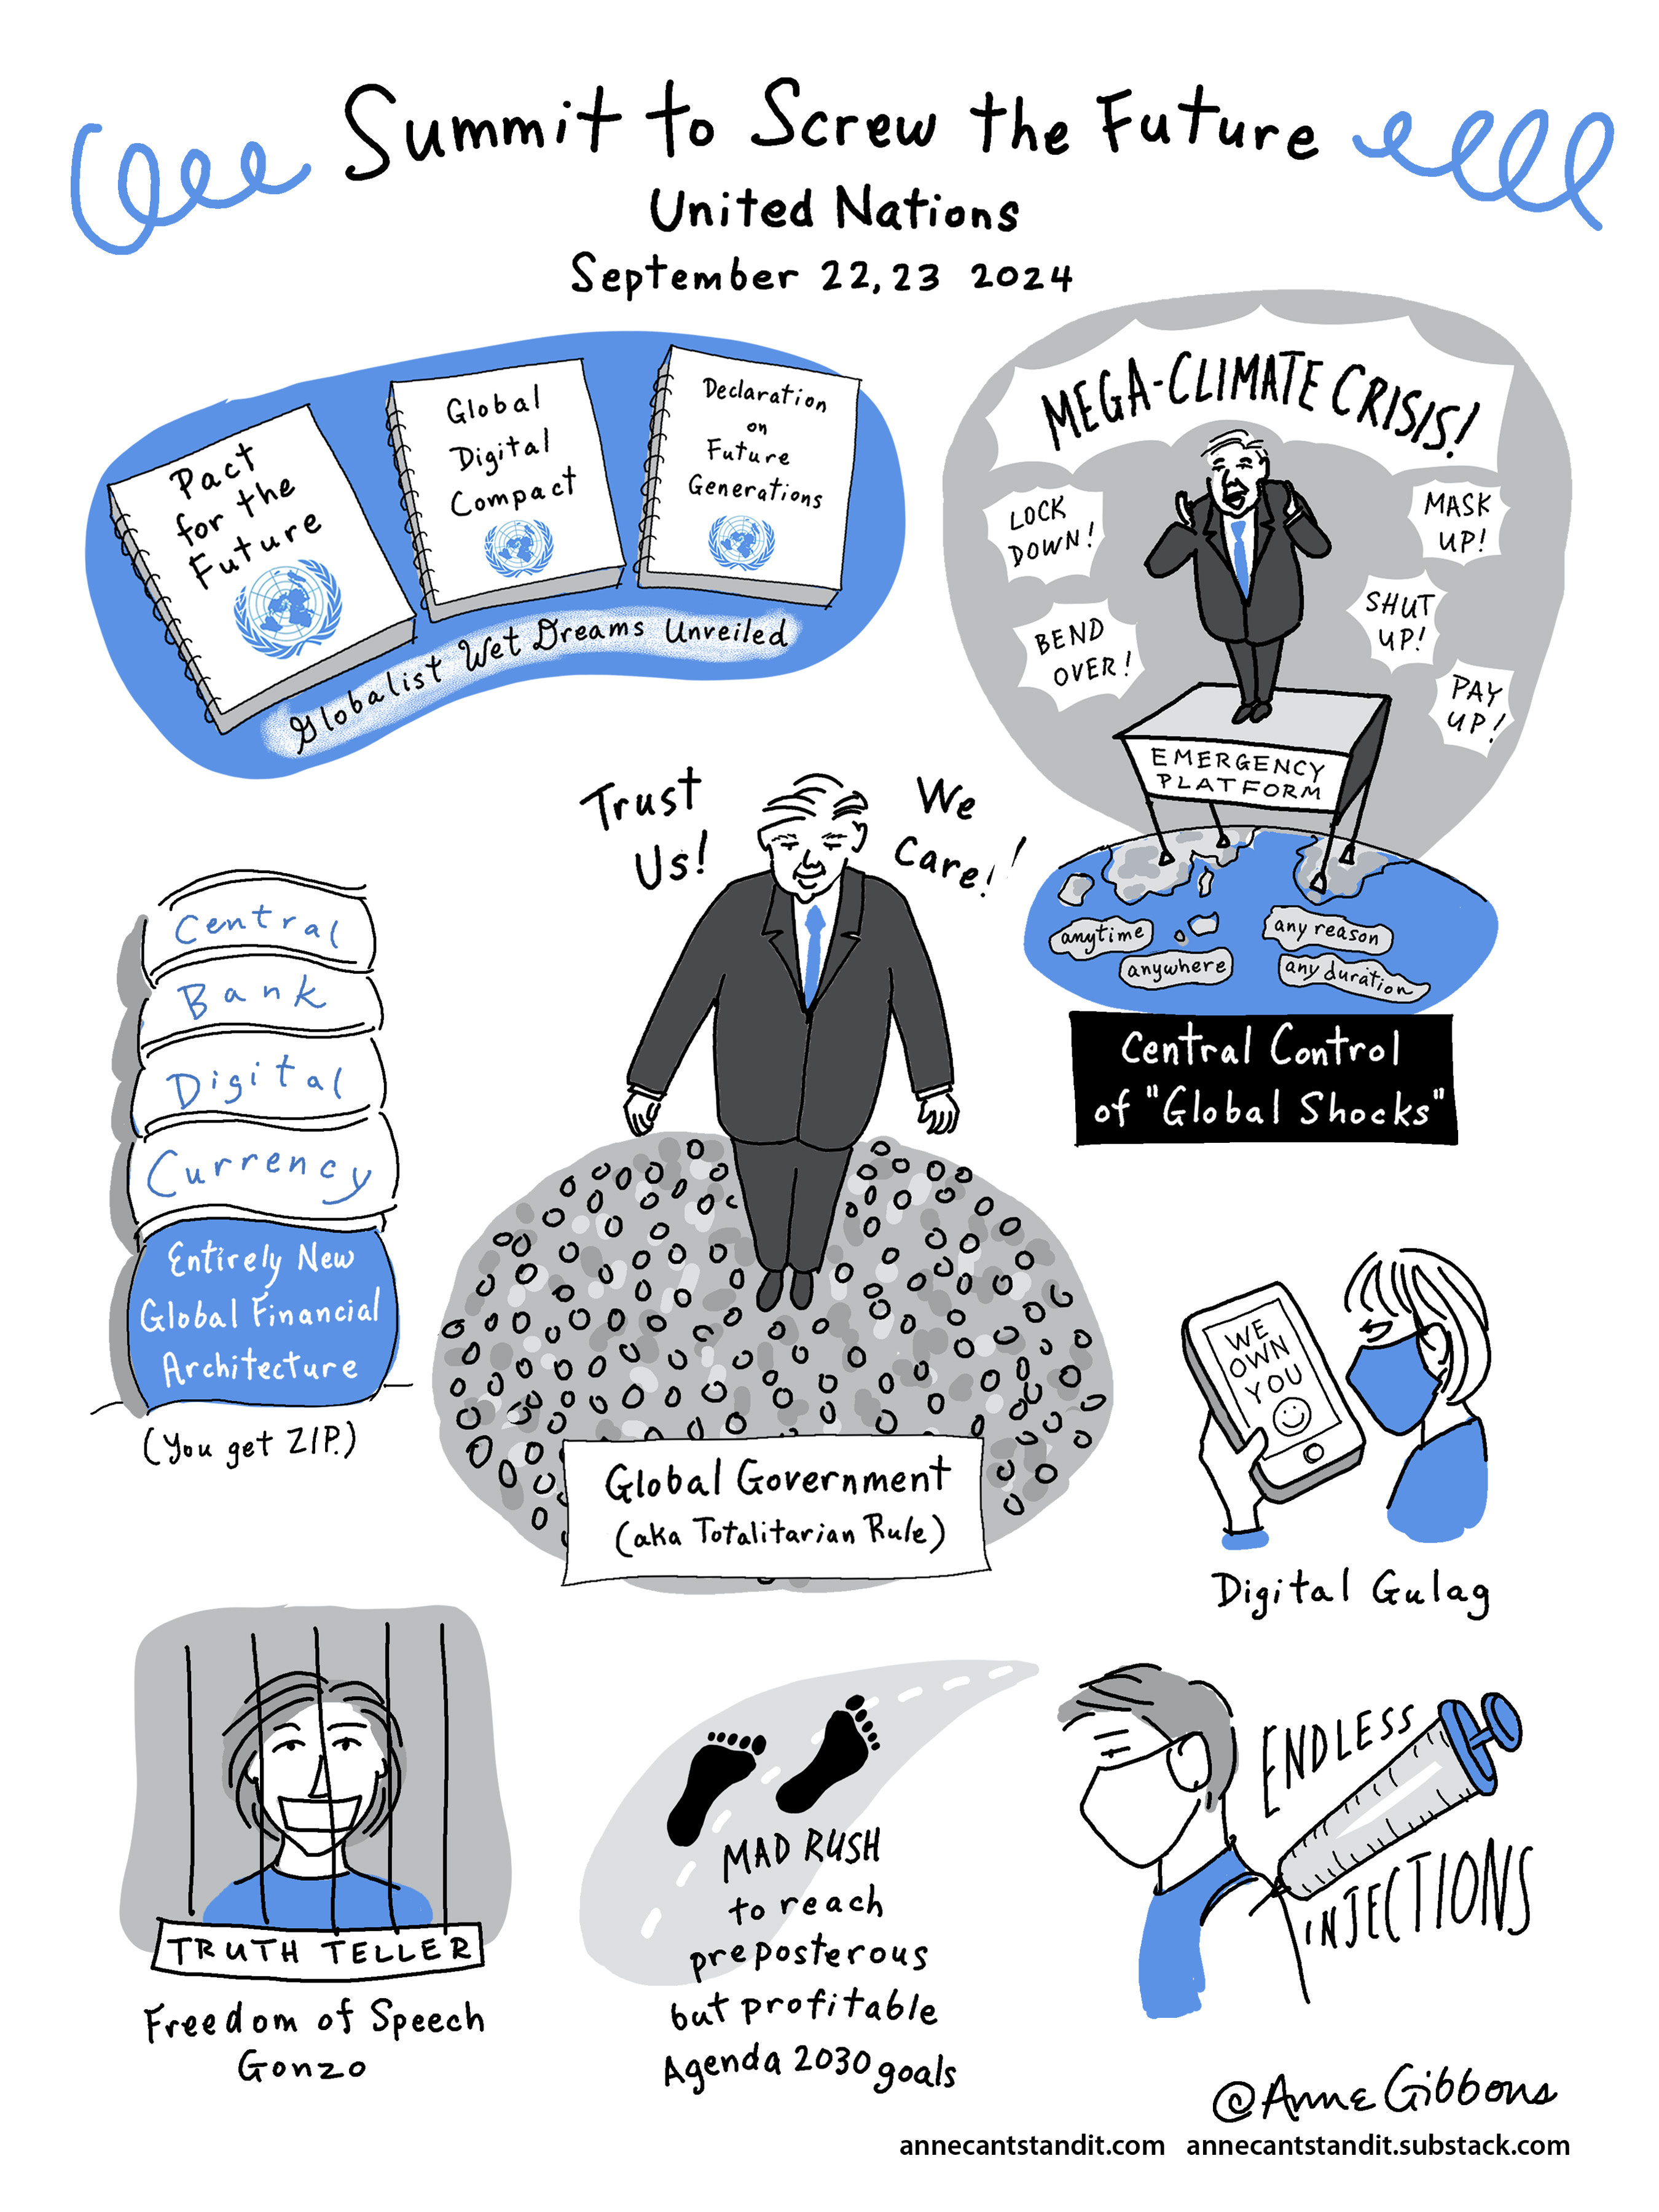 Summit to Screw the Future
United Nations
September 22, 23 2024
Pact
for the
Future
Global
Digital
Compact
Declaration
on
Future
Generations
Globalist Wet Dreams Unveiled
MEGA-CLIMATE CRISIS!
LOCK
DOWN!
MASK
UP!
BEND
OVER!
SHUT
UP!
PAY
UP!
EMERGENCY
PLATFORM
anytime
any reason
anywhere
any duration
Central Control
of "Global Shocks"
Trust
Us!
We
Care!
Central
Bank
Digital
Currency
Entirely New
Global Financial
Architecture
(You get ZIP.)
Global Government
(aka Totalitarian Rule)
WE
OWN
YOU
Digital Gulag
TRUTH TELLER
Freedom of Speech
Gonzo
MAD RUSH
to reach
preposterous
but profitable
Agenda 2030 goals
ENDLESS
INJECTIONS
@Anne Gibbons
annecantstandit.com annecantstandit.substack.com